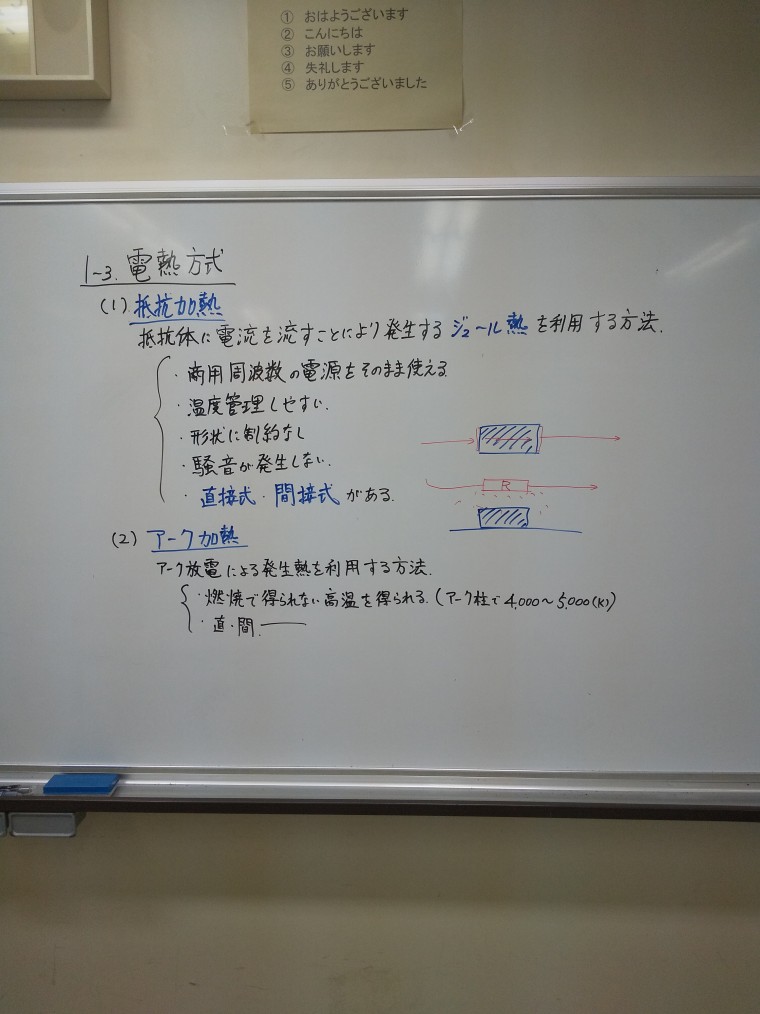 ① おはようございます
② こんにちは
③ お願いします
④ 失礼します
⑤ ありがとうございました
1-3. 電熱方式
(1) 抵抗加熱
抵抗体に電流を流すことにより発生するジュール熱を利用する方法.
・商用周波数の電源をそのまま使える
・温度管理しやすい.
・形状に制約なし
・騒音が発生しない.
・直接式・間接式がある.
R
(2) アーク加熱
アーク放電による発生熱を利用する方法.
・燃焼で得られない高温を得られる.(アーク柱で4,000〜5,000(K))
・直・間.―